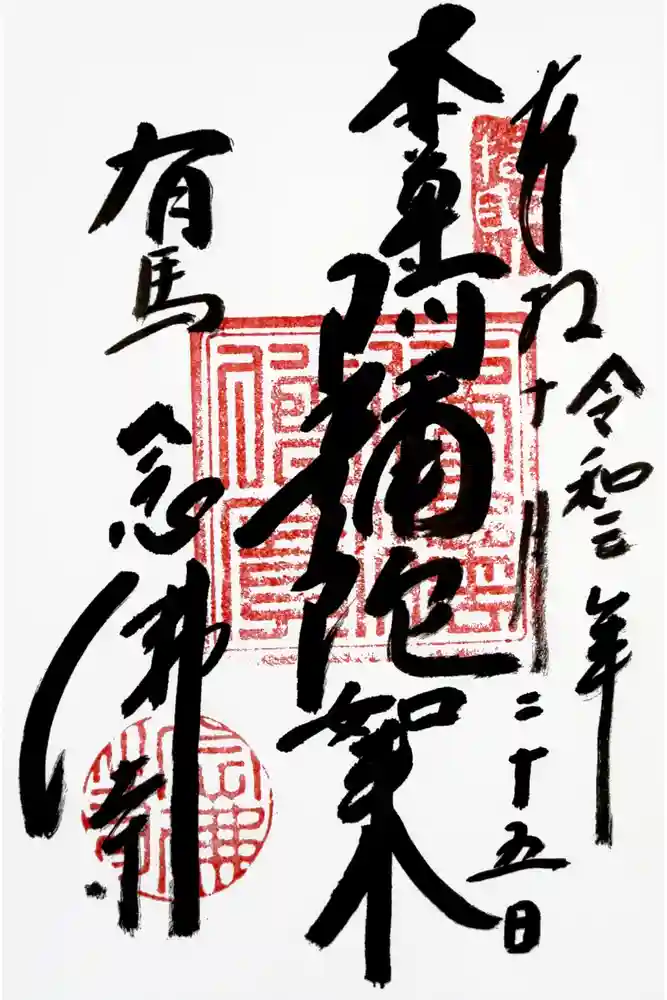 令和三年
奉拝
十月二十五日
本尊
阿彌陀如来
有馬
念佛寺